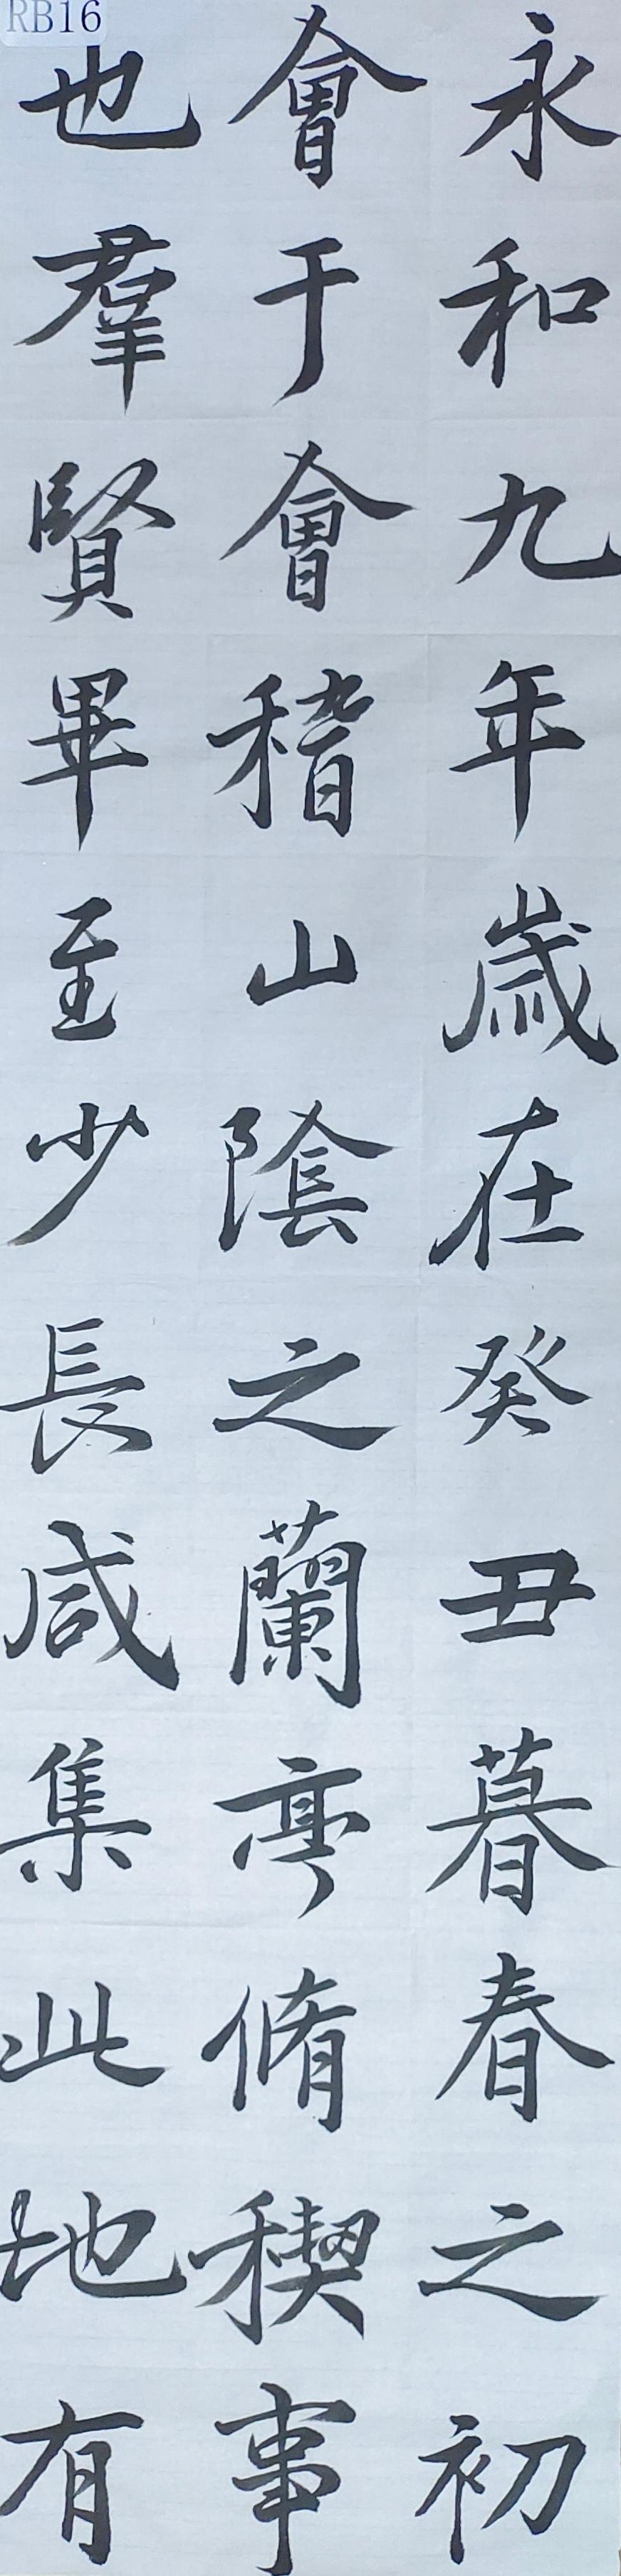 RB16
永和九年歲在癸丑暮春之初
會于會稽山陰之蘭亭脩稧事
也羣賢畢至少長咸集此地有